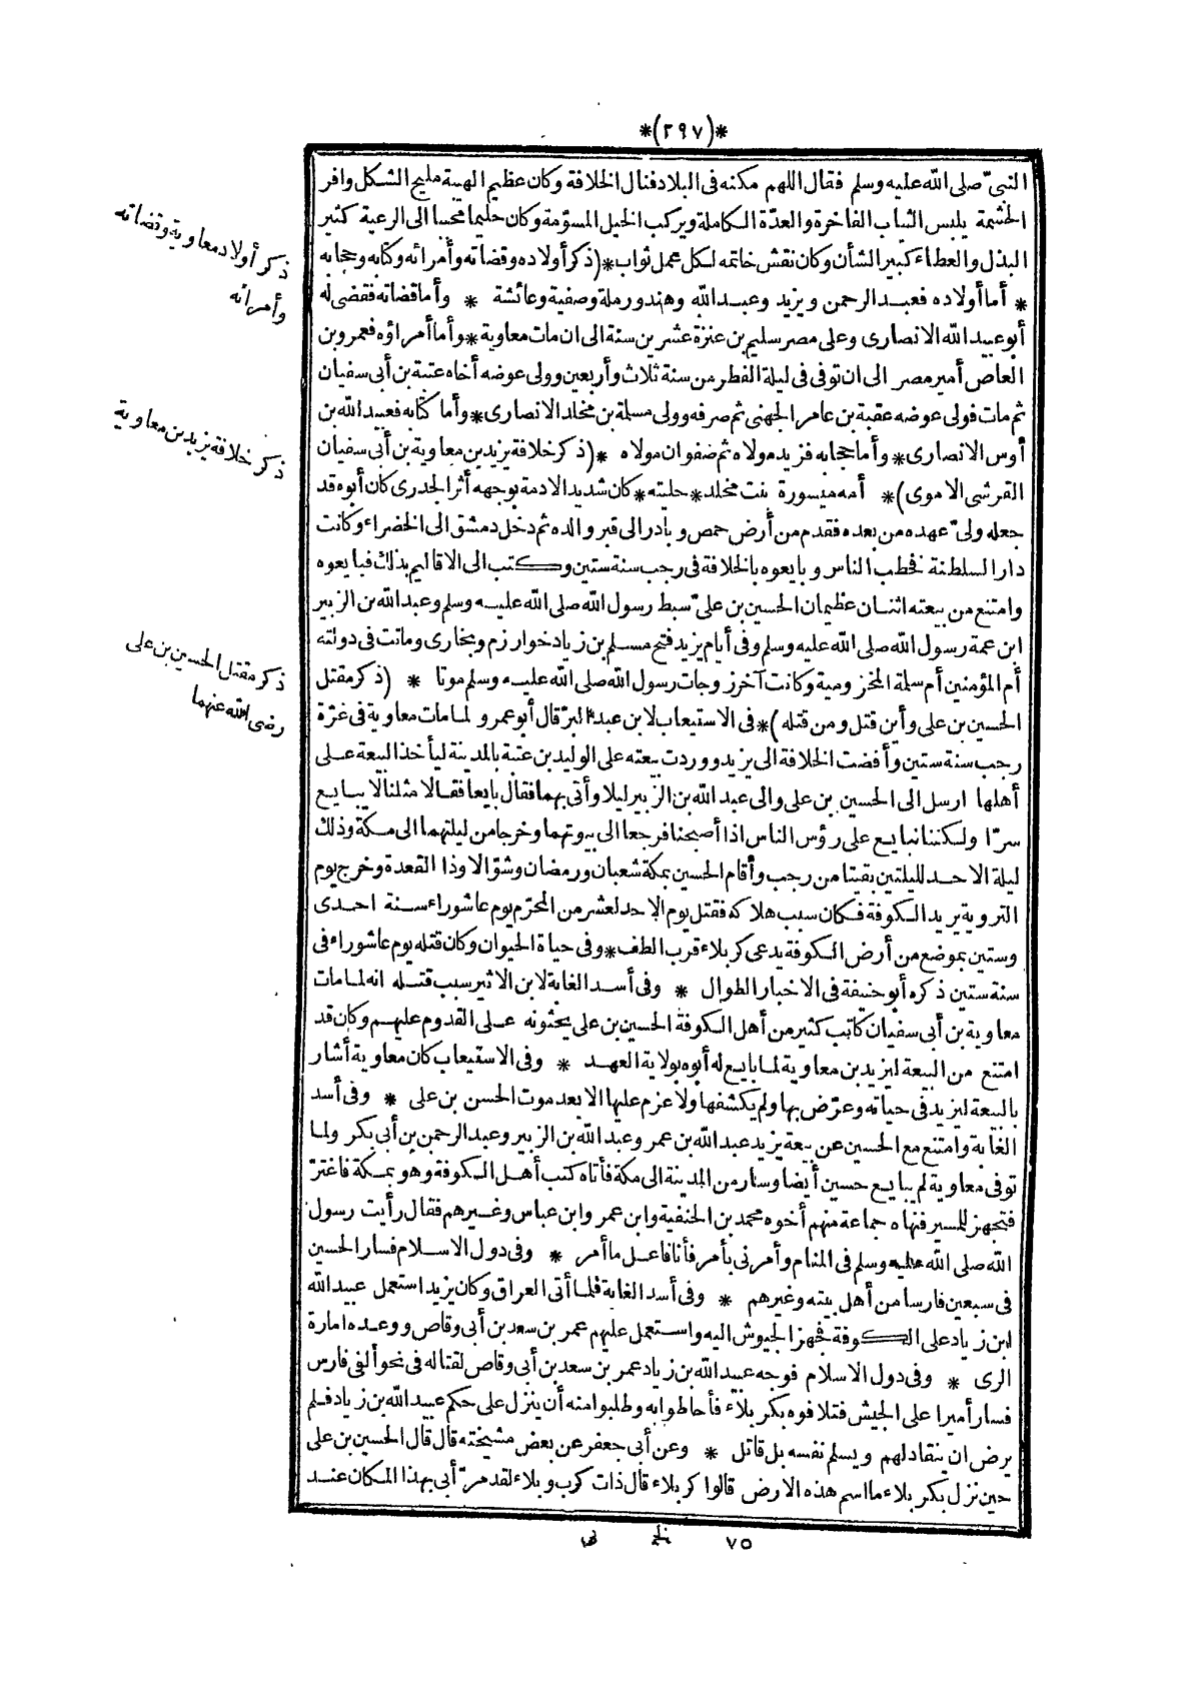 *(٢٩٧)*
النبىّ صلى الله عليه وسلم فقال اللهم مكنه فى البلاد فنال الخلافة وكان عظيم الهيبة مليح الشكل وافر
الحشمة يلبس الثياب الفاخرة والعدّة الكاملة ويركب الخيل المسوّمة وكان حليما محببا الى الرعية كثير
البذل والعطاء كبير الشأن وكان نقش خاتمه لكل عمل ثواب *(ذكر أولاده وقضاته وأمرائه وكتابه وحجابه
* أما أولاده فعبد الرحمن ويزيد وعبد الله وهند ورملة وصفية وعائشة * وأما قضاته فقضى له
أبو عبيد الله الانصارى وعلى مصر سليم بن عنزة عشرين سنة الى ان مات معاوية * وأما أمراؤه فعمرو بن
العاص أمير مصر الى ان توفى فى ليلة الفطر من سنة ثلاث وأربعين وولى عوضه أخاه عتبة بن أبى سفيان
ثم مات فولى عوضه عقبة بن عامر الجهنى ثم صرفه وولى مسلمة بن مخلد الانصارى * وأما كتابه فعبيد الله بن
أوس الانصارى * وأما حجابه فزيد مولاه ثم صفوان مولاه *(ذكر خلافة يزيد بن معاوية بن أبى سفيان
القرشى الاموى)* أمه ميسورة بنت مخلد * حليته * كان شديد الادمة بوجهه أثر الجدرى كان أبوه قد
جعله ولىّ عهده من بعده فقدم من أرض حمص وبادر الى قبر والده ثم دخل دمشق الى الخضراء وكانت
دار السلطنة فخطب الناس وبايعوه بالخلافة فى رجب سنة ستين وكتب الى الاقاليم بذلك فبايعوه
وامتنع من بيعته اثنان عظيمان الحسين بن علىّ سبط رسول الله صلى الله عليه وسلم وعبد الله بن الزبير
ابن عمة رسول الله صلى الله عليه وسلم وفى أيام يزيد فتح مسلم بن زياد خوارزم وبخارى وماتت فى دولته
أم المؤمنين أم سلمة المخزومية وكانت آخر زوجات رسول الله صلى الله عليه وسلم موتا * (ذكر مقتل
الحسين بن على وأين قتل ومن قتله)* فى الاستيعاب لابن عبد البرّ قال أبو عمر و لما مات معاوية فى غرّة
رجب سنة ستين وأفضت الخلافة الى يزيد ووردت بيعته على الوليد بن عتبة بالمدينة ليأخذ البيعة على
أهلها ارسل الى الحسين بن على والى عبد الله بن الزبير ليلا وأتى بهما فقال بايعا فقالا مثلنا لا يبايع
سرّا ولكننا نبايع على رؤس الناس اذا أصبحنا فرجعا الى بيوتهما وخرجا من ليلتهما الى مكة وذلك
ليلة الاحد لليلتين بقيتا من رجب وأقام الحسين بمكة شعبان ورمضان وشوّالا وذا القعدة وخرج يوم
التروية يريد الكوفة فكان سبب هلاكه فقتل يوم الاحد لعشر من المحرّم يوم عاشوراء سنة احدى
وستين بموضع من أرض الكوفة يدعى كربلاء قرب الطف * وفى حياة الحيوان وكان قتله يوم عاشوراء فى
سنة ستين ذكره أبو حنيفة فى الاخبار الطوال * وفى أسد الغابة لابن الاثير سبب قتله انه لما مات
معاوية بن أبى سفيان كاتب كثير من أهل الكوفة الحسين بن على يحثونه على القدوم عليهم وكان قد
امتنع من البيعة ليزيد بن معاوية لما بايع له أبوه بولاية العهد * وفى الاستيعاب كان معاوية أشار
بالبيعة ليزيد فى حياته وعرّض بها ولم يكشفها ولا عزم عليها الا بعد موت الحسن بن على * وفى أسد
الغابة وامتنع مع الحسين عن بيعة يزيد عبد الله بن عمر وعبد الله بن الزبير وعبد الرحمن بن أبى بكر ولما
توفى معاوية لم يبايع حسين أيضا وسار من المدينة الى مكة فأتاه كتب أهل الكوفة وهو بمكة فاغترّ
فتجهز للمسير فنهاه جماعة منهم أخوه محمد بن الحنفية وابن عمر وابن عباس وغيرهم فقال رأيت رسول
الله صلى الله عليه وسلم فى المنام وأمرنى بأمر فأنا فاعل ما أمر * وفى دول الاسلام فسار الحسين
فى سبعين فارسا من أهل بيته وغيرهم * وفى أسد الغابة فلما أتى العراق وكان يزيد استعمل عبيد الله
ابن زياد على الكوفة فجهز الجيوش اليه واستعمل عليهم عمر بن سعد بن أبى وقاص ووعده امارة
الرى * وفى دول الاسلام فوجه عبيد الله بن زياد عمر بن سعد بن أبى وقاص لقتاله فى نحو ألفى فارس
فسار أميرا على الجيش فتلاقوه بكربلاء فأحاطوا به وطلبوا منه أن ينزل على حكم عبيد الله بن زياد فلم
يرض ان ينقاد لهم ويسلم نفسه بل قاتل * وعن أبى جعفر عن بعض مشيخته قال قال الحسين بن على
حين نزل بكربلاء ما اسم هذه الارض قالوا كربلاء قال ذات كرب وبلاء لقد مرّ أبى بهذا المكان عند
ذكر أولاد معاوية وقضاته
وأمرائه
ذكر خلافة يزيد بن معاوية
ذكر مقتل الحسين بن على
رضى الله عنهما
٧٥